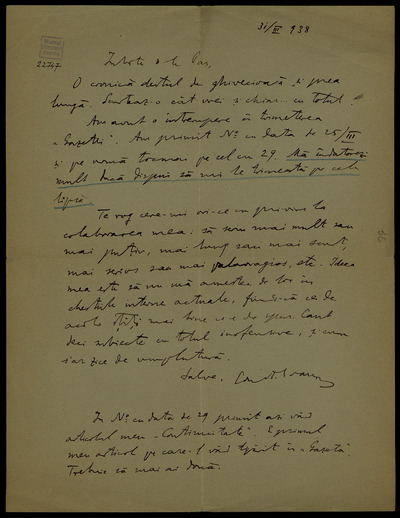 31/III 938
22747
Iubite d-le Pas,
O cronică destul de ghivecioasă și prea
lungă. Scurtaz-o cât vrei și chiar... cu totul.
Am avut o întrerupere în trimeterea
„Gazetei". Am primit No cu data de 25/III
și pe urmă tocmai pe cel cu 29. Mă îndatorezi
mult dacă dispui să mi le trimeată pe cele
lipsă.
Te rog cere-mi ori-ce cu privire la
colaborarea mea: să scriu mai mult sau
mai puțin, mai lung sau mai scurt,
mai serios sau mai palavragios, etc. Ideea
mea este să nu mă amestec de loc în
chestiile interne actuale, fiindcă cei de
acolo știți mai bine ce e de spus. Caut
deci subiecte cu totul inofensive, și cum
s'ar zice de umplutură.
Salve,
In No cu data de 29 primit azi văd
articolul meu „Continuitate". E primul
meu articol pe care-l văd tipărit în „Gazetă".
Trebuie să mai ai două.